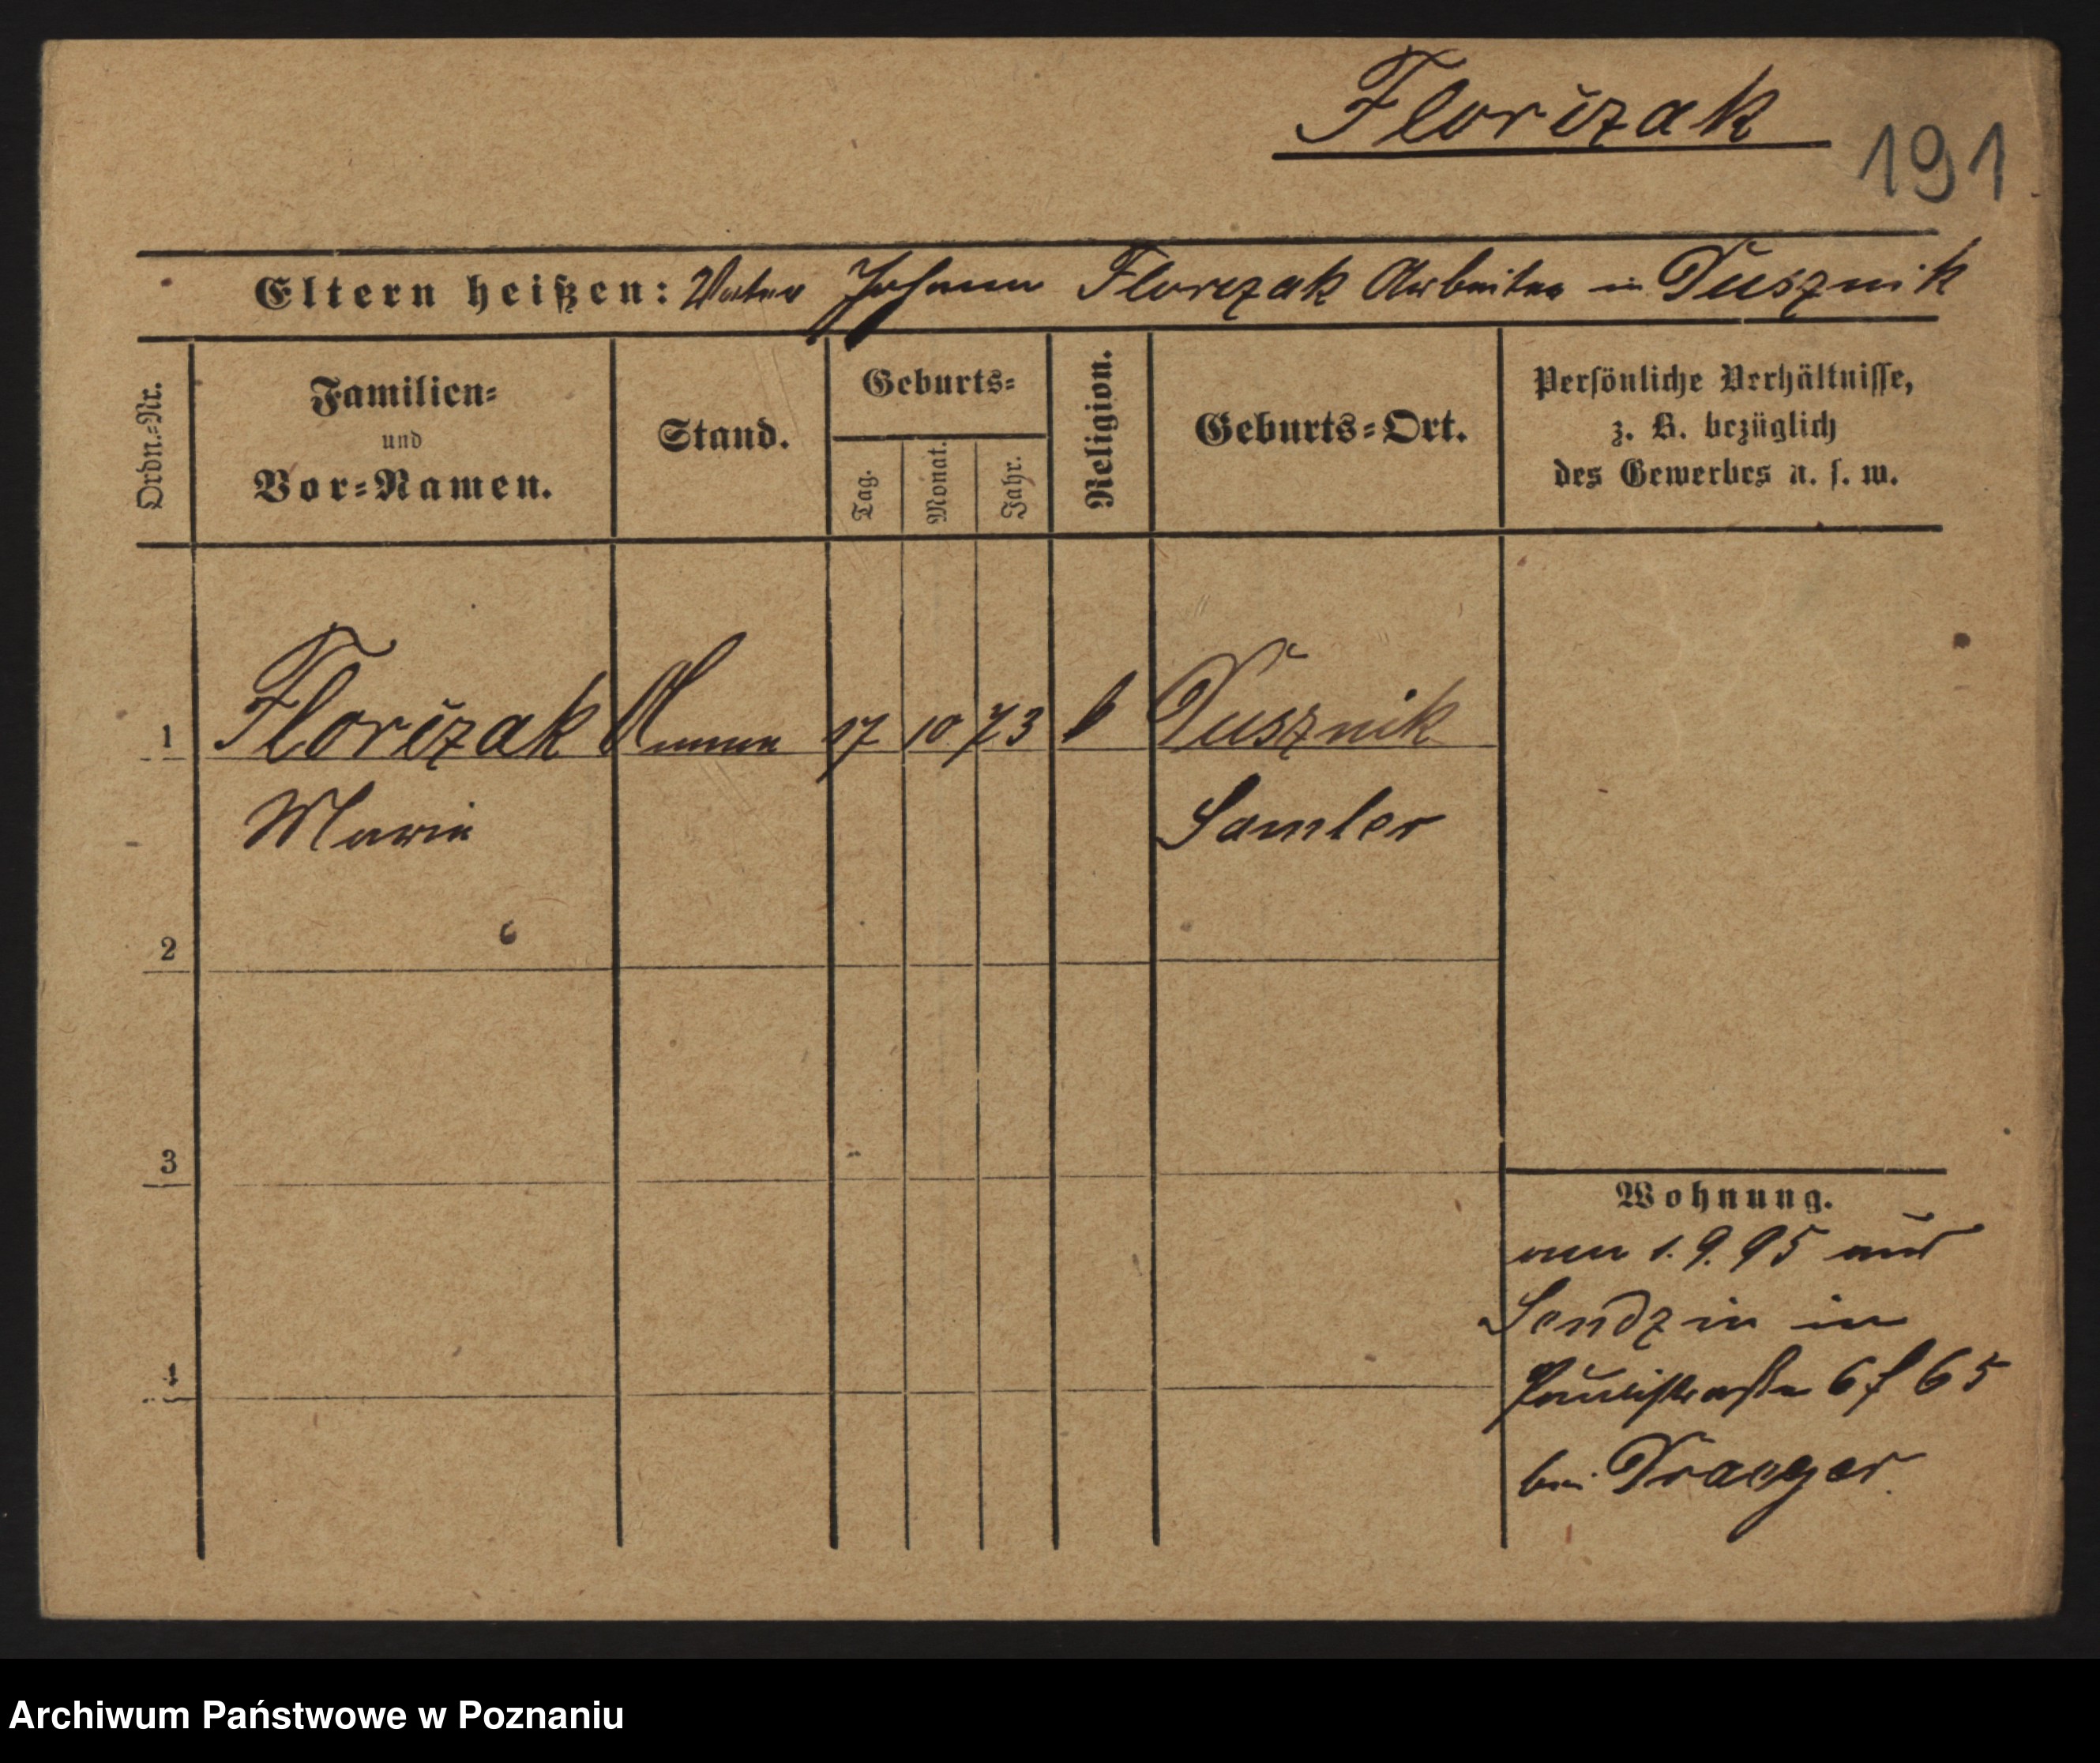 Florčzak
191
Eltern heißen: Vater Johann Florczak Arbeiter in Dusznik
Ordn.-Nr.
Familien-
und
Vor-Namen.
Stand.
Geburts-
Tag.
Monat.
Jahr.
Religion.
Geburts-Ort.
Persönliche Verhältnisse,
z. B. bezüglich
des Gewerbes u. s. w.
1 Florčzak Amme 17 10 73 k Dusznik
Marie Samter
2
3
4
Wohnung.
am 1.9.95 aus
Sendzin in
Paulistraße 6 f 65
bei Draeger.
Archiwum Państwowe w Poznaniu